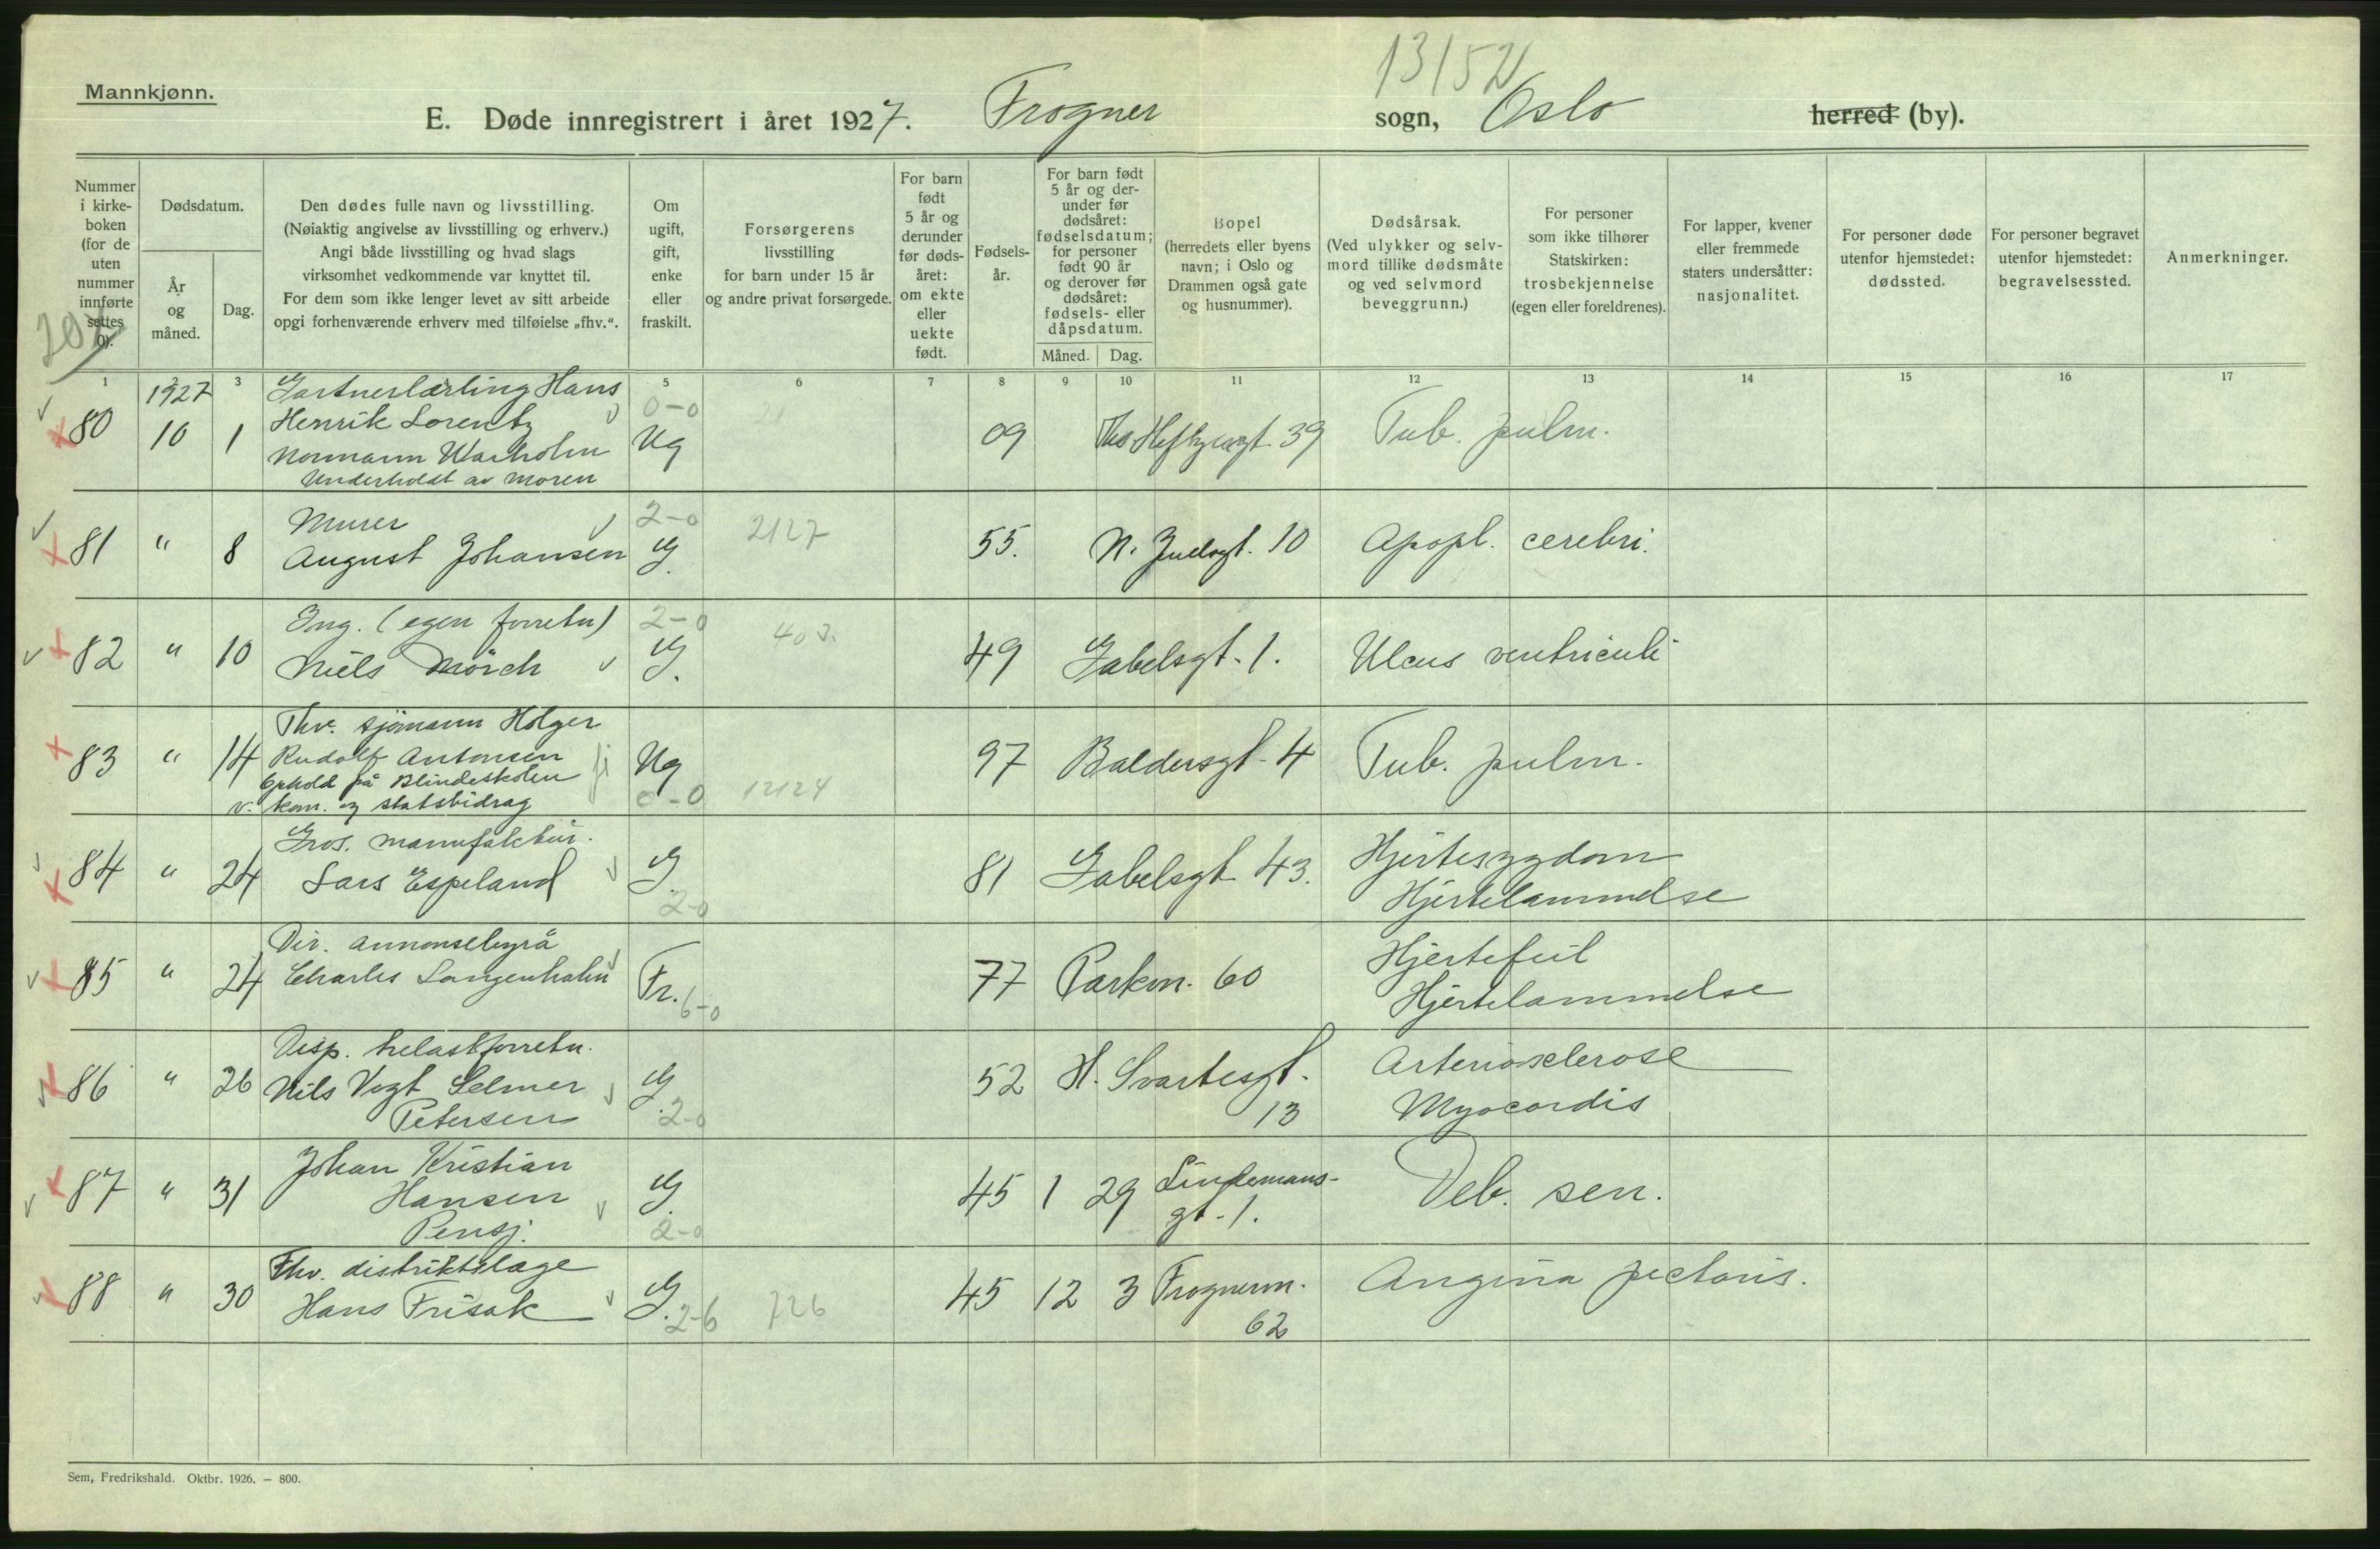 13152
Mannkjønn.
E. Døde innregistrert i året 1927. Frogner sogn, Oslo herred (by).
Nummer i kirke-boken (for de uten nummer innførte settes 0).
Dødsdatum.
År og måned.
Dag.
Den dødes fulle navn og livsstilling.
(Nøiaktig angivelse av livsstilling og erhverv.)
Angi både livsstilling og hvad slags
virksomhet vedkommende var knyttet til.
For dem som ikke lenger levet av sitt arbeide
opgi forhenværende erhverv med tilføielse „fhv.“.
Om ugift, gift, enke eller fraskilt.
Forsørgerens
livsstilling
for barn under 15 år
og andre privat forsørgede.
For barn født 5 år og derunder før døds-året: om ekte eller uekte født.
Fødsels-år.
For barn født 5 år og der-under før dødsåret: fødselsdatum; for personer født 90 år og derover før dødsåret: fødsels- eller dåpsdatum.
Måned.
Dag.
Bopel
(herredets eller byens
navn; i Oslo og
Drammen også gate
og husnummer).
Dødsårsak.
(Ved ulykker og selv-
mord tillike dødsmåte
og ved selvmord
beveggrunn.)
For personer
som ikke tilhører
Statskirken:
trosbekjennelse
(egen eller foreldrenes).
For lapper, kvener
eller fremmede
staters undersåtter:
nasjonalitet.
For personer døde
utenfor hjemstedet:
dødssted.
For personer begravet
utenfor hjemstedet:
begravelsessted.
Anmerkninger.
1 2 3 5 6 7 8 9 10 11 12 13 14 15 16 17
1927 Gartnerlærling Hans 0-0
80 10 1 Henrik Lorentz Ug 09 Ths. Heftyesgt. 39 Tub. pulm.
Normann Warholm
Underholdt av moren
Murer 2-0 2127
81 " 8 August Johansen G. 55. N. Juelsgt. 10 Apopl. cerebri.
Ing. (egen forretn) 2-0 403.
82 " 10 Niels Mörch G. 49 Gabelsgt. 1. Ulcus ventriculi
Fhv. sjömann Holger
83 " 14 Rudolf Antonsen Ug 97 Baldersgt. 4 Tub. pulm.
Ophold på Blindeskolen
v. kom. og statsbidrag 0-0 12124
Gros. manufaktur.
84 " 24 Lars Espeland G. 2-0 81 Gabelsgt 43. Hjertesygdom
Hjertelammelse
Dir. annonsebyrå
85 " 24 Charles Langenhahn Fr. 6-0 77 Parkvn. 60 Hjertefeil
Hjertelammelse
Disp. trelastforretn.
86 " 26 Nils Vogt Selmer G. 52 H. Svartesgt. Arteriosclerose
Petersen 2-0 13 Myocardis
Johan Kristian
87 " 31 Hansen G. 45 1 29 Lindemans-
gt. 1. Deb. sen.
Pensj. 2-0
Fhv. distriktslæge
88 " 30 Hans Frisak G. 2-6 726 45 12 3 Frognervn. Angina pectoris.
62
Sem, Fredrikshald. Oktbr. 1926. – 800.